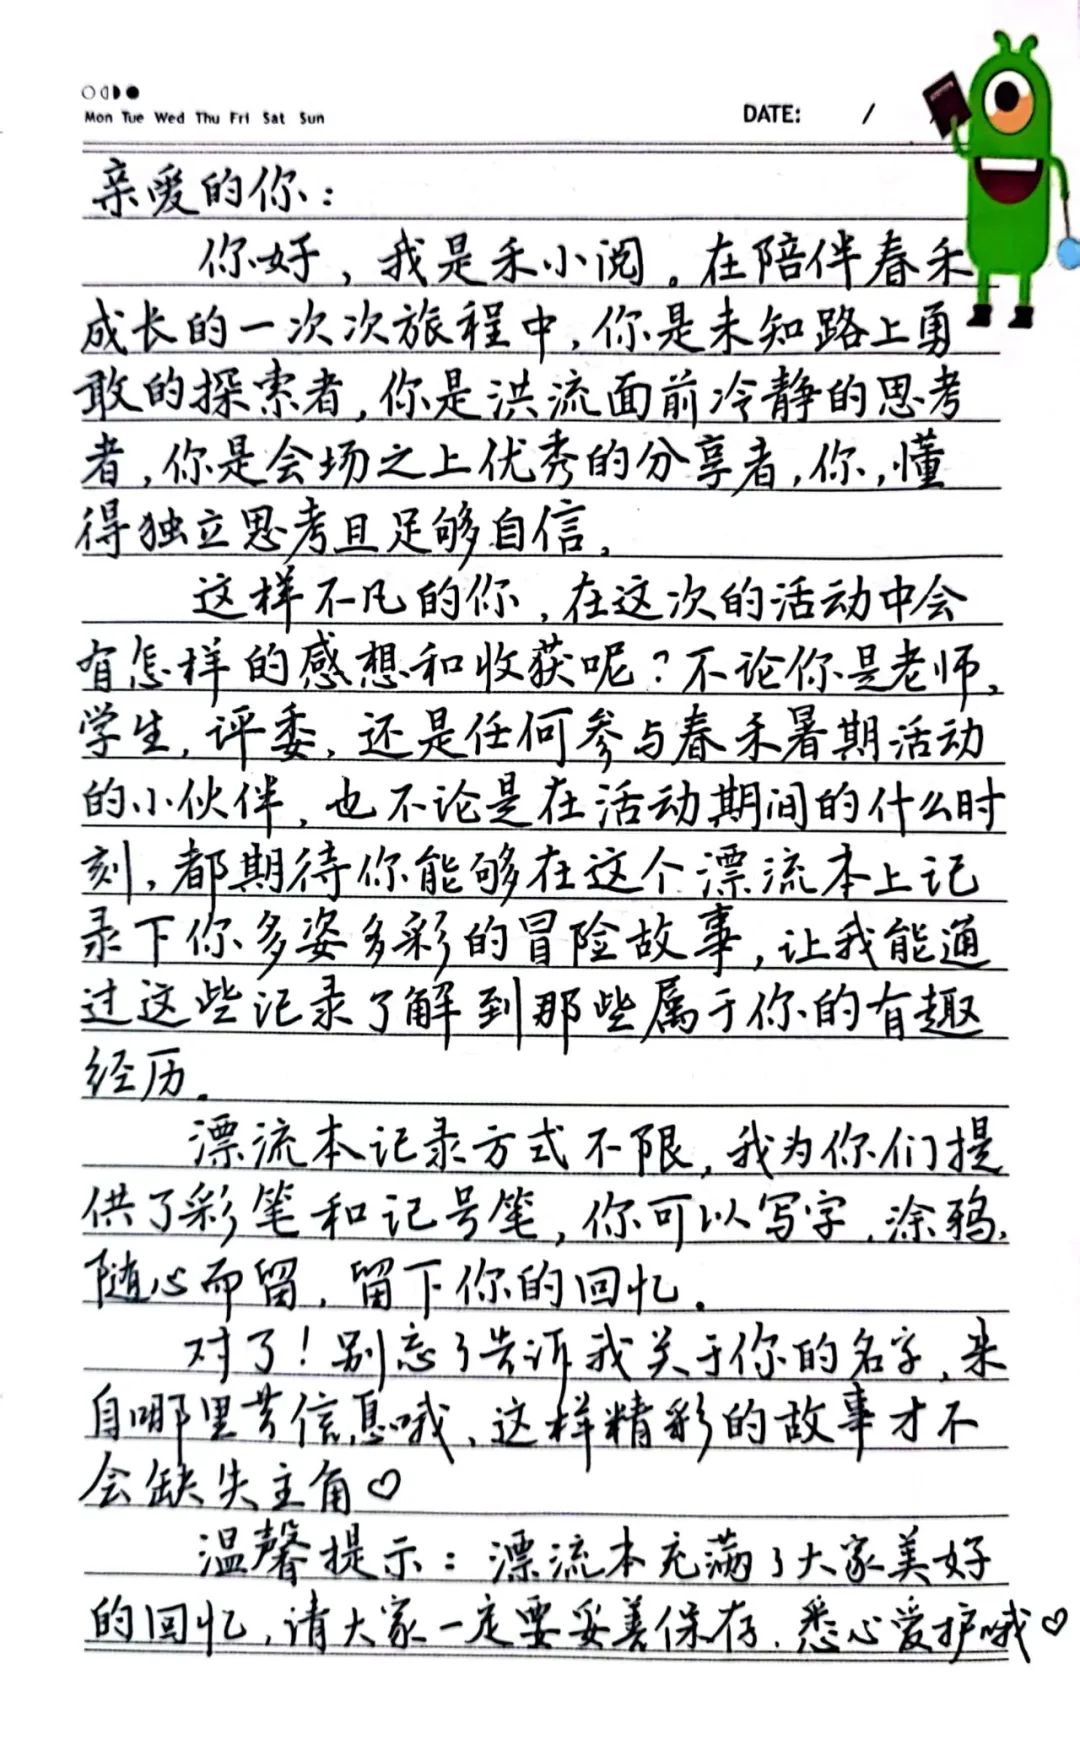 Mon Tue Wed Thu Fri Sat Sun
DATE: /
亲爱的你：
你好，我是禾小阅。在陪伴春禾
成长的一次次旅程中，你是未知路上勇
敢的探索者，你是洪流面前冷静的思考
者，你是会场之上优秀的分享者，你，懂
得独立思考且足够自信。
这样不凡的你，在这次的活动中会
有怎样的感想和收获呢？不论你是老师、
学生、评委，还是任何参与春禾暑期活动
的小伙伴，也不论是在活动期间的什么时
刻，都期待你能够在这个漂流本上记
录下你多姿多彩的冒险故事，让我能通
过这些记录了解到那些属于你的有趣
经历。
漂流本记录方式不限，我为你们提
供了彩笔和记号笔，你可以写字、涂鸦，
随心而留，留下你的回忆。
对了！别忘了告诉我关于你的名字，来
自哪里等信息哦，这样精彩的故事才不
会缺失主角♡
温馨提示：漂流本充满了大家美好
的回忆，请大家一定要妥善保存，悉心爱护哦♡